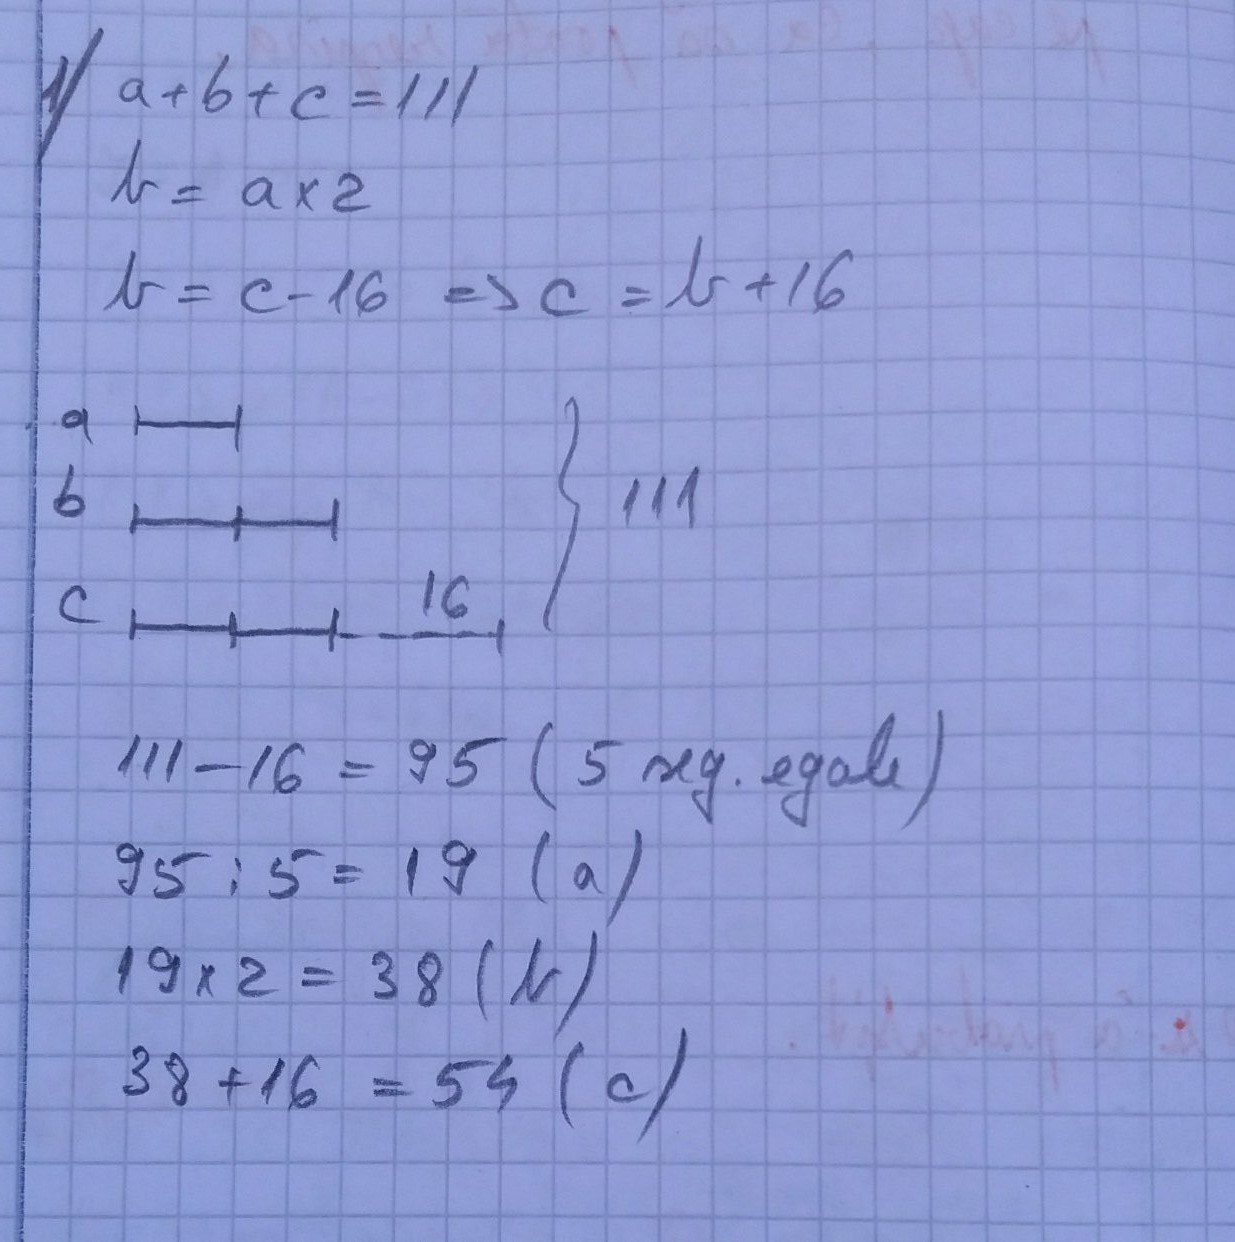 1) a+b+c=111
b = a×2
b = c-16 => c = b+16
a
b
111
c
16
111-16 = 95 (5 seg. egale)
95:5 = 19 (a)
19×2 = 38 (b)
38+16 = 54 (c)